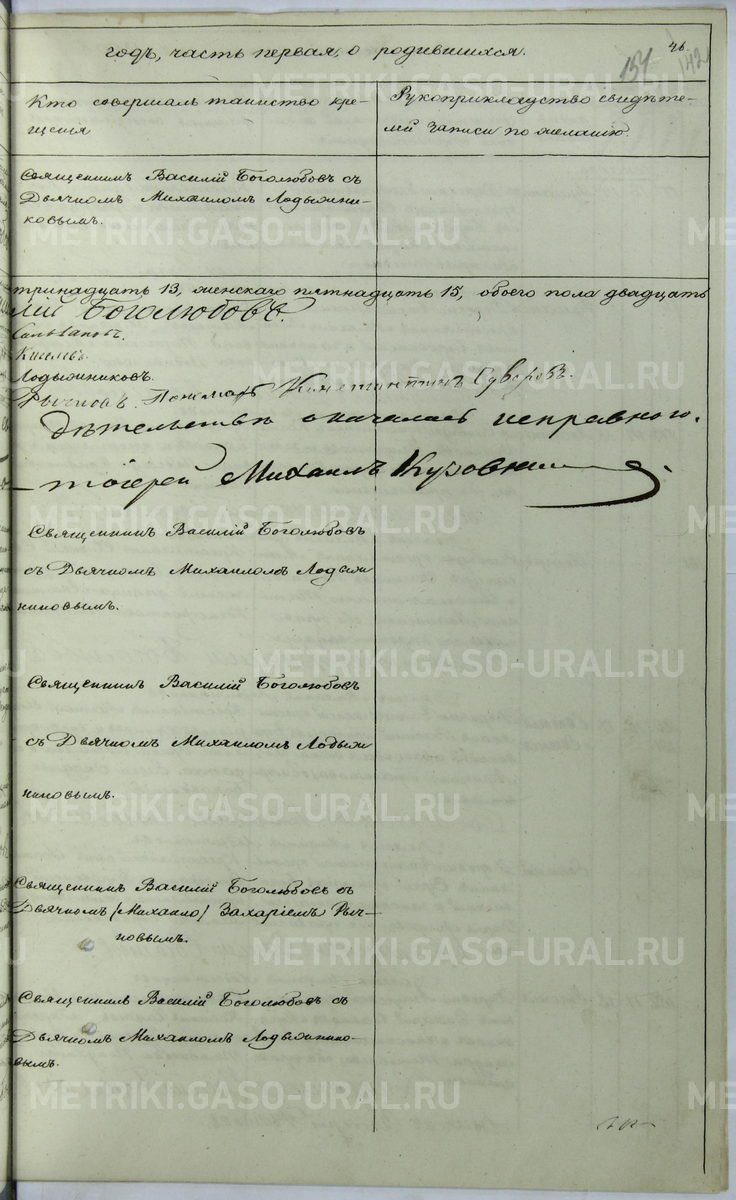 годъ, часть первая, о родившихся.
46.
151 142
Кто совершалъ таинство кре-
щенія
Рукоприкладство свидѣте-
лей записи по желанію.
Священникъ Василій Боголюбовъ съ
Дьячкомъ Михаиломъ Лодыжни-
ковымъ.
тринадцать 13, женскаго пятнадцать 15, обоего пола двадцать
лій Боголюбовъ.
Киселевъ.
Лодыжниковъ.
Рычковъ. Пономарь Константинъ Суворовъ.
дѣтельствѣ оказалась исправною.
тоіерей Михаилъ
Священникъ Василій Боголюбовъ
съ Дьячкомъ Михаиломъ Лодыж
никовымъ.
Священникъ Василій Боголюбовъ
съ Дьячкомъ Михаиломъ Лодыж
никовымъ.
Священникъ Василій Боголюбовъ съ
Дьячкомъ /Михаило/ Захаріемъ Рыч-
ковымъ.
Священникъ Василій Боголюбовъ съ
Дьячкомъ Михаиломъ Лодыжнико-
вымъ.
METRIKI.GASO-URAL.RU